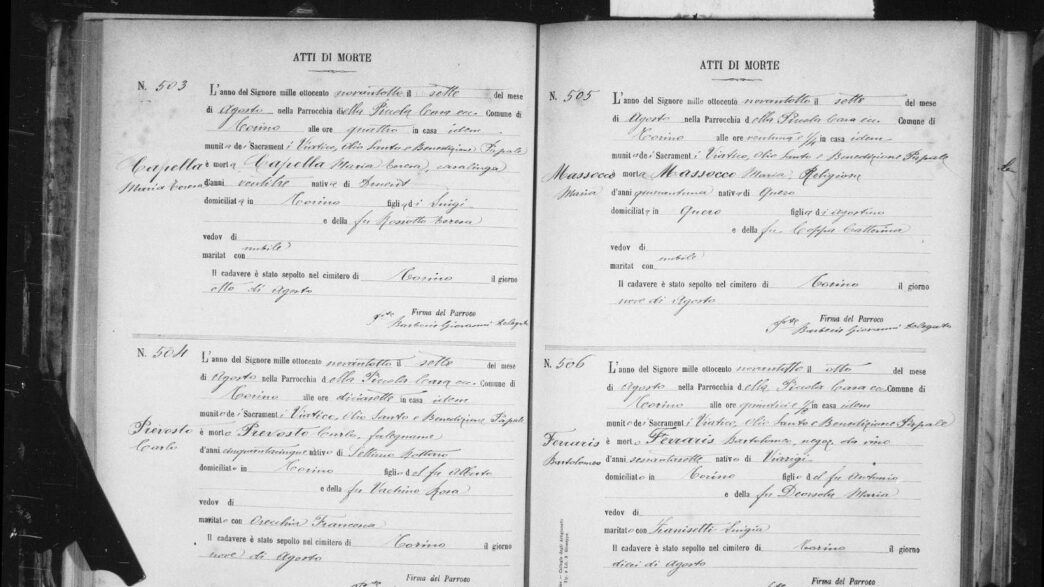 ATTI DI MORTE
N. 503
L'anno del Signore mille ottocento novantotto il sette del mese
di Agosto nella Parrocchia della Piccola Casa ecc. Comune di
Torino alle ore quattro in casa idem
munita de' Sacramenti Viatico, Olio Santo e Benedizione Papale
Capella
Maria Teresa
è morta Capella Maria Teresa, casalinga
d'anni ventitre nativa di
domiciliata in Torino figlia di Luigi
e della fu Rossotto Teresa
vedov di
maritat con nubile
Il cadavere è stato sepolto nel cimitero di Torino il giorno
otto di Agosto
Firma del Parroco
Barberis Giovanni delegato
N. 504
L'anno del Signore mille ottocento novantotto il sette del mese
di Agosto nella Parrocchia della Piccola Casa ecc. Comune di
Torino alle ore diciasette in casa idem
munito de' Sacramenti Viatico, Olio Santo e Benedizione Papale
Prevosto
Carlo
è morto Prevosto Carlo, falegname
d'anni cinquantacinque nativo di Settimo Rottaro
domiciliato in Torino figlio del fu Alberto
e della fu Vachino Rosa
vedov di
maritato con Orecchia Francesca
Il cadavere è stato sepolto nel cimitero di Torino il giorno
nove di Agosto
Firma del Parroco
ATTI DI MORTE
N. 505
L'anno del Signore mille ottocento novantotto il sette del mese
di Agosto nella Parrocchia della Piccola Casa ecc. Comune di
Torino alle ore ventuna e 1/2 in casa idem
munita de' Sacramenti Viatico, Olio Santo e Benedizione Papale
Massocco
Maria
è morta Massocco Maria, Religiosa
d'anni quarantuna nativa di Quero
domiciliata in Quero figlia di Agostino
e della fu Coppa Catterina
vedov di
maritat con nubile
Il cadavere è stato sepolto nel cimitero di Torino il giorno
nove di Agosto
Firma del Parroco
Barberis Giovanni delegato
N. 506
L'anno del Signore mille ottocento novantotto il otto del mese
di Agosto nella Parrocchia della Piccola Casa ecc. Comune di
Torino alle ore quindici e 1/2 in casa idem
munito de' Sacramenti Viatico, Olio Santo e Benedizione Papale
Ferraris
Bartolomeo
è morto Ferraris Bartolomeo, negoz. da vino
d'anni sessantasette nativo di Viarigi
domiciliato in Torino figlio del fu Antonio
e della fu Deorsola Maria
vedov di
maritato con Franisetti Luigia
Il cadavere è stato sepolto nel cimitero di Torino il giorno
dieci di Agosto
Firma del Parroco